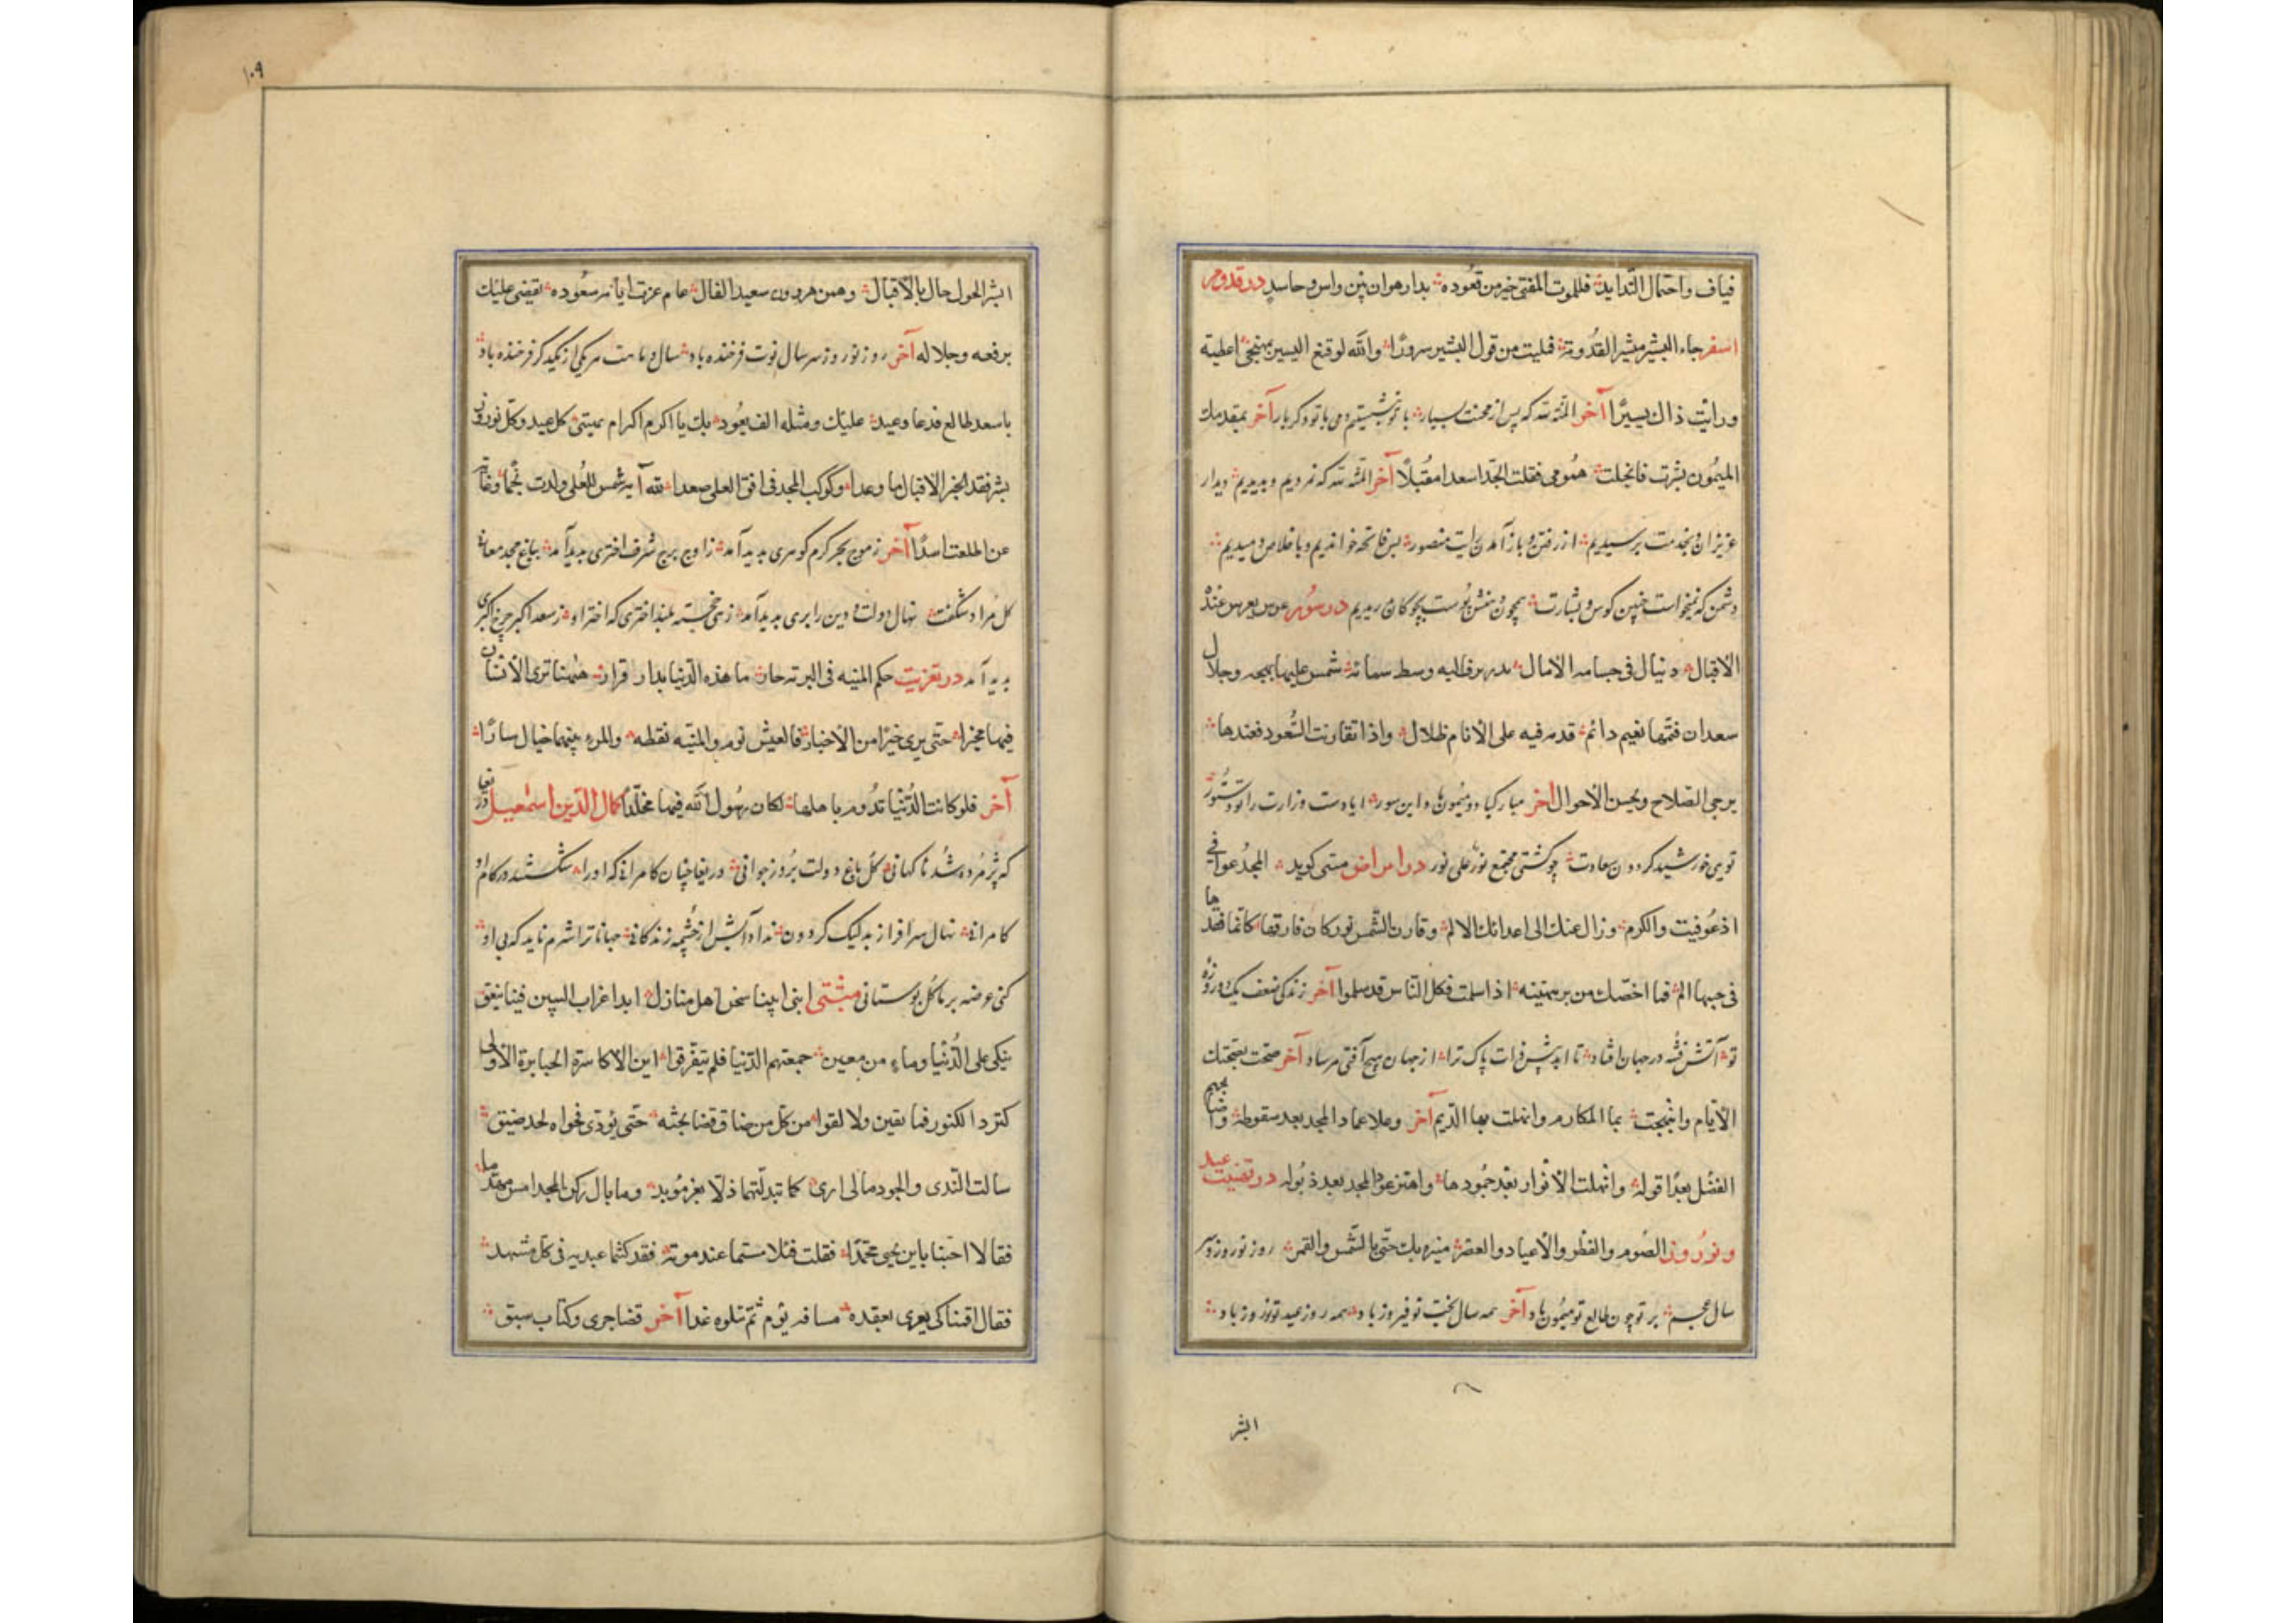 فیاف واحتمال الشداید فللموت للفتی خیر من قعوده بدار هوان بین واس وحاسد در قدوم
اسفر جاء البشیر مبشرا لقدومه فملیت من قول البشیر سرورا والله لو قنع البشیر بمهجتی اعطیته
ورایت ذاك یسیرا آخر المنة لله که پس از محنت بسیار با تو نشستیم و می با تو دگر بار آخر بمقدمك
المیمون بشرت فانجلت همومی فقلت الجد اسعد مقبلا آخر المنة لله که نمردیم و بدیدیم دیدار
عزیزان و بخدمت برسیدیم از رفتن و باز آمدن رایت منصور بس فاتحه خواندیم و باخلاص دمیدیم
دشمن که نمیخواست چنین کوس و بشارت همچون دهلش پوست بچوکان دریدیم در سور عرس یعرس عنده
الاقبال وینال فی الامال بدر وسط سمائه شمس علیها بهجه وجلال
سعدان ضمهما نعیم دائم قدمه فیه علی الانام ظلال واذا تقارنت السعود فعندها
یرجی الصلاح ویحسن الاحوال آخر مبارک باد و میمون باد این سور ایا دست وزارت را تو دستور
تویی خورشید گردون سعادت چو کشتی مجتمع نور علی نور در امراض متنبی گوید المجد عوفی
اذ عوفیت والکرم وزال عنك الی اعدائك الالم وقارن الشمس نور کان فارقها کانما فقدها
فی جسمها الم فما اخصك من برء بتهنیه اذا سلمت فکل الناس قد سلموا آخر زندگی ضعف یک دو روزه
تو آتش فتنه در جهان افتاد تا ابد پیش ذات پاک ترا از جهان هیچ آفتی مرساد آخر صحت بصحتك
الایام وابتهجت بها المکارم وانهلت بها الدیم آخر وعلا عماد المجد بعد سقوطه
الفضل بعد افوله وانهلت الانوار بعد جمودها واهتز عود المجد بعد ذبوله در تهنیت عید
ونوروز الصوم والفطر والاعیاد والعصر منیره بك حتی الشمس والقمر روز نوروز و سر
سال عجم بر تو چون طالع تو میمون باد آخر همه سال بخت تو فیروز باد همه روز عید تو نوروز باد
البشر
۱۰۹
ابشر الحول حال بالاقبال وهمن هردون سعید الفال عام عزت ایامه سعوده یقضی علیك
برفعه وجلاله آخر روز نوروز سر سال نوت فرخنده باد سال و ماهت هر یکی از یکدگر فرخنده باد
باسعد طالع قد عاد عید علیك ومثله الف یعود بك یا اکرم اکرام کل عید وکل نوروز
بشر فقد انجز الاقبال ما وعدا وکوکب المجد فی افق العلی صعدا لله آیه شمس للعلی ولدت نجما وغابة
عن اطلعت اسدا آخر ز موج بحر کرم گوهری پدید آمد ز اوج برج شرف اختری پدید آمد بباغ مجد معالی
گل مراد شکفت نهال دولت و دین را بری پدید آمد زهی خجسته بلند اختری که اختر او ز سعد اکبر چرخ اکبری
پدید آمد در تعزیت حکم المنیه فی البریه جار ما هذه الدنیا بدار قرار هیهنا تری الانسان
فیها مخبرا حتی یری خبرا من الاخبار فالعیش نوم والمنیه یقظه والمرء بینهما خیال سار
آخر فلو کانت الدنیا تدوم باهلها لکان رسول الله فیها مخلدا کمال الدین اسمعیل دریغا
که پژمرده شد ناگهانی گل باغ دولت بروز جوانی دریغا چنان کامرانی که او را شکستند در کام او
کامرانی نهال سرافراز بد لیک گردون نداد آبش از چشمه زندگانی جهانا ترا شرم ناید که بی او
کنی عرضه بر ما گل بوستانی متنبی ابنی ابینا نحن اهل منازل ابدا غراب البین فینا ینعق
نبکی علی الدنیا وما من معشر جمعتهم الدنیا فلم یتفرقوا این الاکاسرة الجبابرة الاولی
کنزوا الکنوز فما بقین ولا بقوا من کل من ضاق الفضا بجیشه حتی ثوی فحواه لحد ضیق
سالت الندی والجود مالی اری کما تبدلتما ذلا بعز موبد وما بال رکن المجد امسی مهدما
فقالا اصبنا بابن یحیی محمد فقلت فهلا متما عند موته فقد کنتما عبدیه فی کل مشهد
فقال اقمنا کی یعزی بفقده مسافه یوم ثم نتلوه غدا آخر قضا جری وکتاب سبق